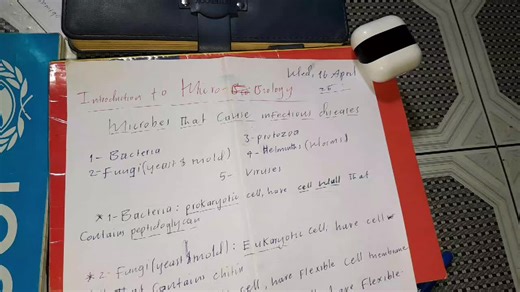 Wed, 16 April
25
Introduction to Micro Biology
Microbes That Cause infectious diseases
1- Bacteria
3- protozoa
2- Fungi (yeast & mold)
4- Helminths (worms)
5- Viruses
*1- Bacteria: prokaryotic cell, have cell wall That
Contain peptidoglycan
*2- Fungi (yeast & mold): Eukaryotic cell, have cell
That Contain chitin
cell, have flexible cell membrane
have Flexible-